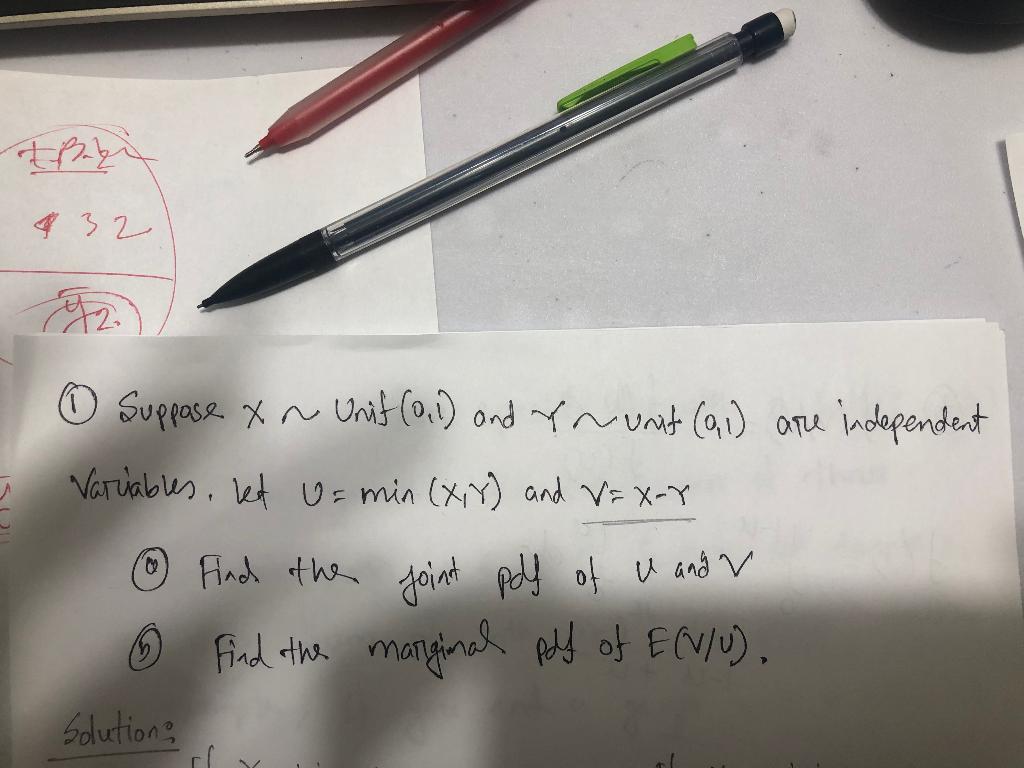 432
y2.
① Suppose X ~ Unif(0,1) and Y ~ Unif (0,1) are independent
Variables. let U = min (X,Y) and V = X-Y
ⓐ Find the joint pdf of U and V
ⓑ Find the marginal pdf of E(V/U).
Solution: